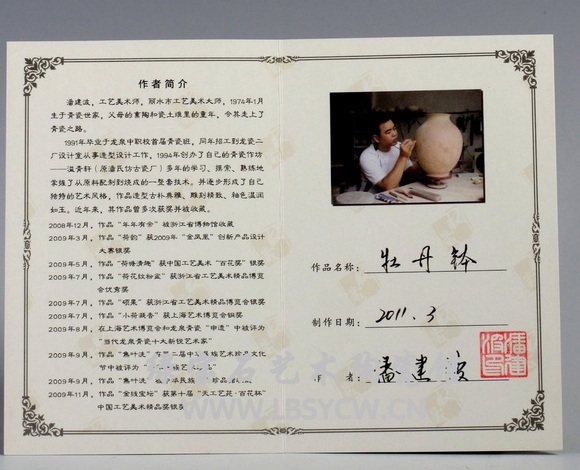 作者简介
潘建波，工艺美术师，丽水市工艺美术大师，1974年1月
生于青瓷世家，父母的熏陶和瓷土堆里的童年，令其走上了
青瓷之路。
1991年毕业于龙泉中职校首届青瓷班，同年招工到龙瓷二
厂设计室从事造型设计工作，1994创办了自己的青瓷作坊
——温青轩（原潘氏仿古瓷厂）多年的学习、摸索、熟练地
掌握了从原料配制到烧成的一整套技术，并逐步形成了自己
独特的艺术风格，作品造型古朴典雅、雕刻精致、釉色温润
如玉。近年来，其作品曾多次获奖并被收藏。
2008年12月，作品“年年有余”被浙江省博物馆收藏
2009年3月，作品“荷韵”获2009年“金凤凰”创新产品设计
大赛银奖
2009年5月，作品“荷塘清趣”获中国工艺美术“百花奖”银奖
2009年7月，作品“荷花纹粉盒”获浙江省工艺美术精品博览
会优秀奖
2009年7月，作品“硕果”获浙江省工艺美术精品博览会银奖
2009年7月，作品“小荷凝香”获上海艺术博览会铜奖
2009年8月，在上海艺术博览会和龙泉青瓷“申遗”中被评为
“当代龙泉青瓷十大新锐艺术家”
2009年9月，作品“蕉叶洗”
节中被评为“
2009年9月，作品“蕉叶洗”
2009年11月，作品“金钱宝坛”获第十届“天工艺苑·百花杯”
中国工艺美术精品奖银奖
作品名称：牡丹钵
制作日期：2011.3
作 者：潘建波
WWW.LBSYCW.CN